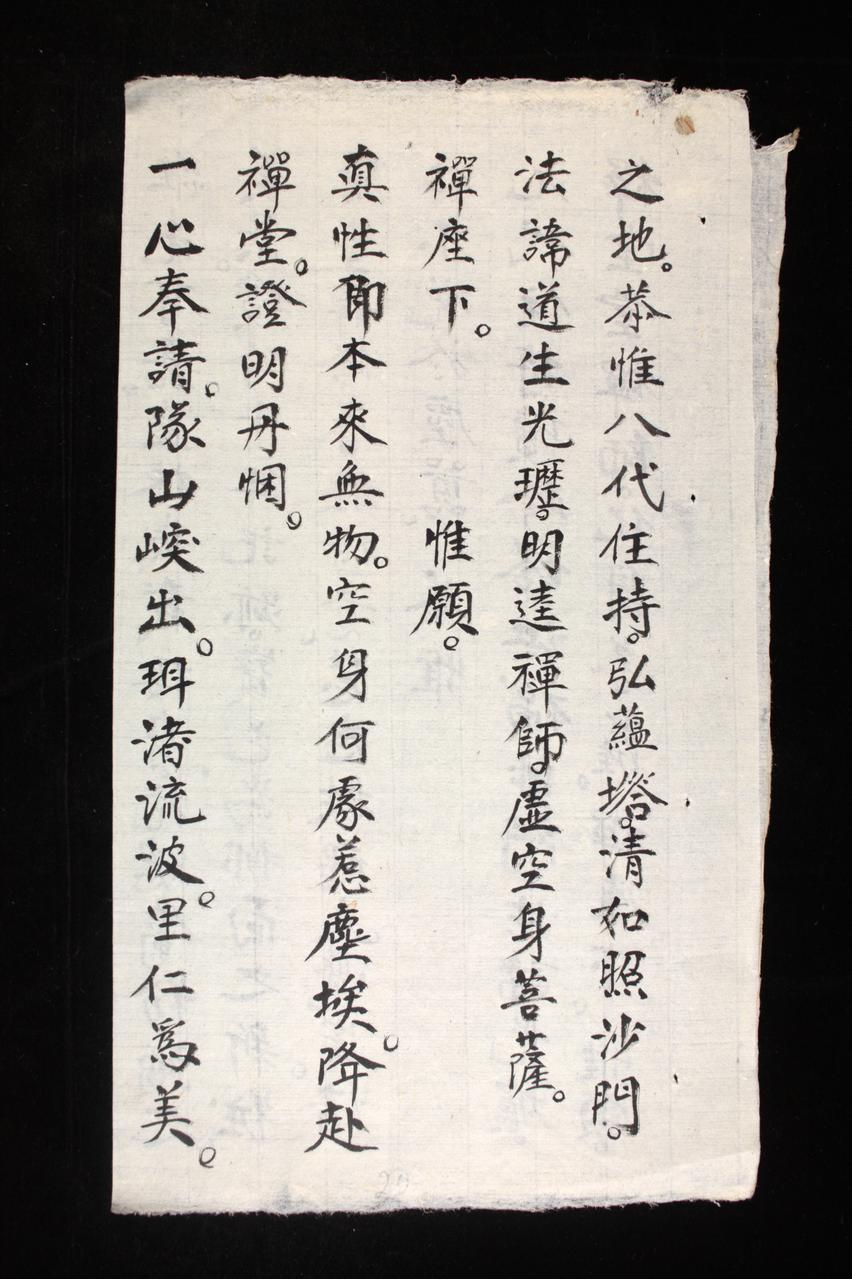 之地。恭惟八代住持。弘蘊塔。清如照沙門。
法諦道生光瓑。明達禪師。虛空身菩薩。
禪座下。惟願。
真性即本來無物。空身何處惹塵埃。降赴
禪堂。證明丹悃。
一心奉請。隊山崚出。珥渚流波。里仁為美。